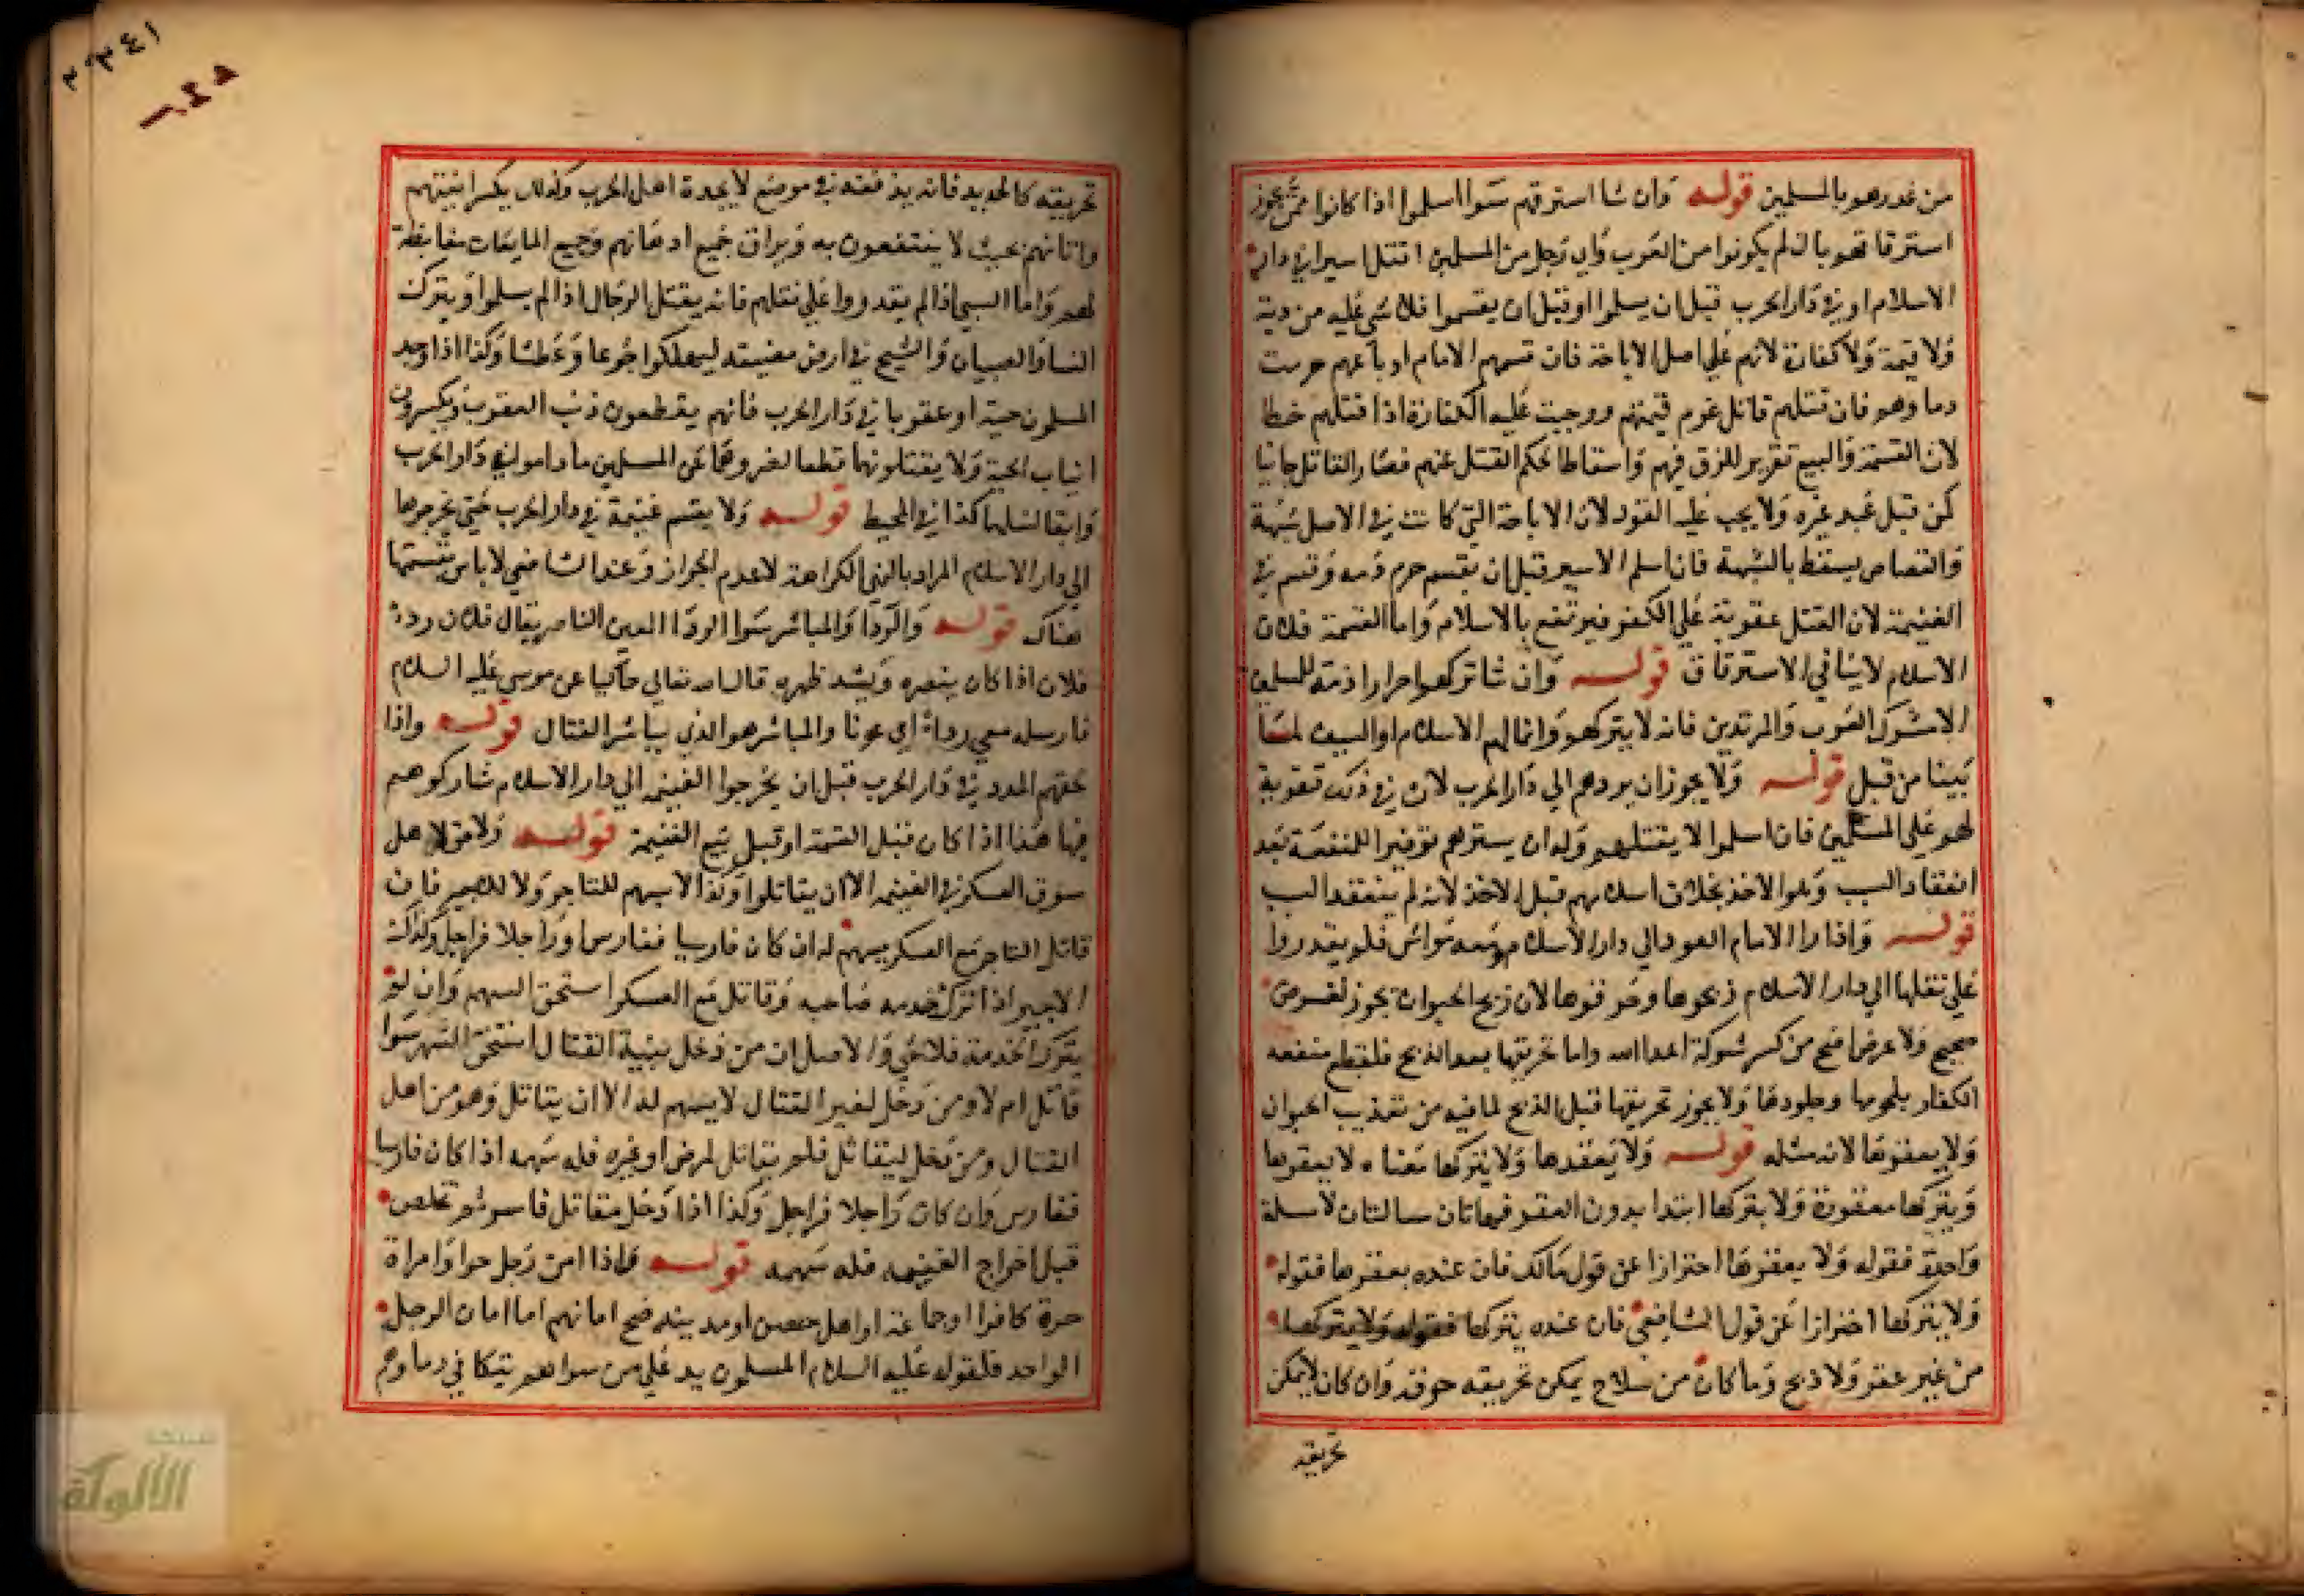 من غدرهم بالمسلمين قوله وان شا استرقهم سوا اسلموا اذا كانوا ممن يجوز
استرقاقهم بان لم يكونوا من العرب واي رجل من المسلمين اقتتل اسيرا في دار
الاسلام او في دار الحرب قبل ان يسلموا او قبل ان يقسموا فلا شي عليه من دية
ولا قيمة ولا كفارة لانهم علي اصل الاباحة فان قسمهم الامام او باعهم حرمت
دماوهم فان قتلهم قاتل غرم قيمتهم ووجبت عليه الكفارة اذا قتلهم خطا
لان القسمة والبيع تقرير للرق فيهم واسقاط لحكم القتل عنهم فصار القاتل جانيا
كمن قتل عبد غيره ولا يجب عليه القود لان الاباحة التي كانت في الاصل شبهة
والقصاص يسقط بالشبهة فان اسلم الاسير قبل ان يقسم حرم دمه وقسم في
الغنيمة لان القتل عقوبة علي الكفر فيرتفع بالاسلام واما القسمة فلان
الاسلام لا ينافي الاسترقاق قوله وان شا تركهم احرارا ذمة للمسلمين
الا مشركي العرب والمرتدين فانه لا يتركهم وانما لهم الاسلام او السيف لما
بينا من قبل قوله ولا يجوز ان يردهم الي دار الحرب لان في ذلك تقوية
لهم علي المسلمين فان اسلموا لا يقتلهم وله ان يسترقهم توفيرا للمنفعة بعد
انعقاد السبب وهو الاخذ بخلاف اسلامهم قبل الاخذ لانه لم ينعقد السب
قوله واذا ارا الامام العود الي دار الاسلام ومعه مواش فلم يقدروا
علي نقلها الي دار الاسلام ذبحوها وحرقوها لان ذبح الحيوان يجوز لغرض
صحيح ولا غرض اصح من كسر شوكة اعدا الله واما تحريقها بعد الذبح فلقطع منفعه
الكفار بلحومها وجلودها ولا يجوز تحريقها قبل الذبح لما فيه من تعذيب الحيوان
ولا يعقرها لانه مثله قوله ولا يعقرها ولا يتركها معناه لا يعقرها
ويتركها معقورة ولا يتركها ابتدا بدون العقر فهاتان مسالتان لا مسلة
واحدة فقوله ولا يعقرها احترازا عن قول مالك فان عنده يعقرها فقوله
ولا يتركها احترازا عن قول الشافعي فان عنده يتركها فقوله ولا يتركها
من غير عقر ولا ذبح وما كان من سلاح يمكن تحريقه حرقه وان كان لا يمكن
تحريقه
تحريقه كالحديد فانه يدفنه في موضع لا يجده اهل الحرب وكذلك يكسر انيتهم
واثاثهم بحيث لا ينتفعون به ويراق جميع ادهانهم وجميع المايعات مغايظة
لهم واما السبي اذا لم يقدروا علي نقلهم فانه يقتل الرجال اذا لم يسلموا ويترك
النسا والصبيان والشيخ في ارض مضيعه ليهلكوا جوعا وعطشا وكذا اذا وجد
المسلمون حية او عقربا في دار الحرب فانهم يقطعون ذنب العقرب ويكسرون
انياب الحية ولا يقتلونهما قطعا لضررهما عن المسلمين ما داموا في دار الحرب
وابقا لنسلهما كذا في المحيط قوله ولا يقسم غنيمة في دار الحرب حتي يخرجوها
الي دار الاسلام المراد بالنهي الكراهة لا عدم الجواز وعند الشافعي لا باس بقسمتها
هناك قوله والردا والمباشر سوا الردا المعين الناصر يقال فلان ردء
فلان اذا كان ينصره ويشد ظهره قال الله تعالي حاكيا عن موسي عليه السلام
فارسله معي رداء اي عونا والمباشر هو الذي يباشر القتال قوله واذا
لحقهم المدد في دار الحرب قبل ان يخرجوا الغنيمه الي دار الاسلام شاركوهم
فيها هذا اذا كان قبل القسمة او قبل بيع الغنيمة قوله ولا حق لاهل
سوق العسكر في الغنيمه الا ان يقاتلوا وكذا لا سهم للتاجر ولا للاجير فان
قاتل التاجر مع العسكر يسهم له ان كان فارسا ففارس او راجلا فراجل وكذلك
الاجير اذا ترك خدمه صاحبه وقاتل مع العسكر استحق السهم وان لم
يترك الخدمة فلا شي والاصل ان من دخل بنية القتال استحق السهم سوا
قاتل ام لا ومن دخل لغير القتال لا يسهم له الا ان يقاتل وهو من اهل
القتال ومن دخل ليقاتل فلم يقاتل لمرض او غيره فله سهمه اذا كان فارسا
ففارس وان كان راجلا فراجل وكذا اذا دخل مقاتل فاسر ثم تخلص
قبل اخراج الغنيمه فله سهمه قوله واذا امن رجل حر او امراة
حرة كافرا او جماعة او اهل حصن او مدينه صح امانهم اما امان الرجل
الواحد فلقوله عليه السلام المسلمون يد علي من سواهم تتكافي دماوهم
الألوكة